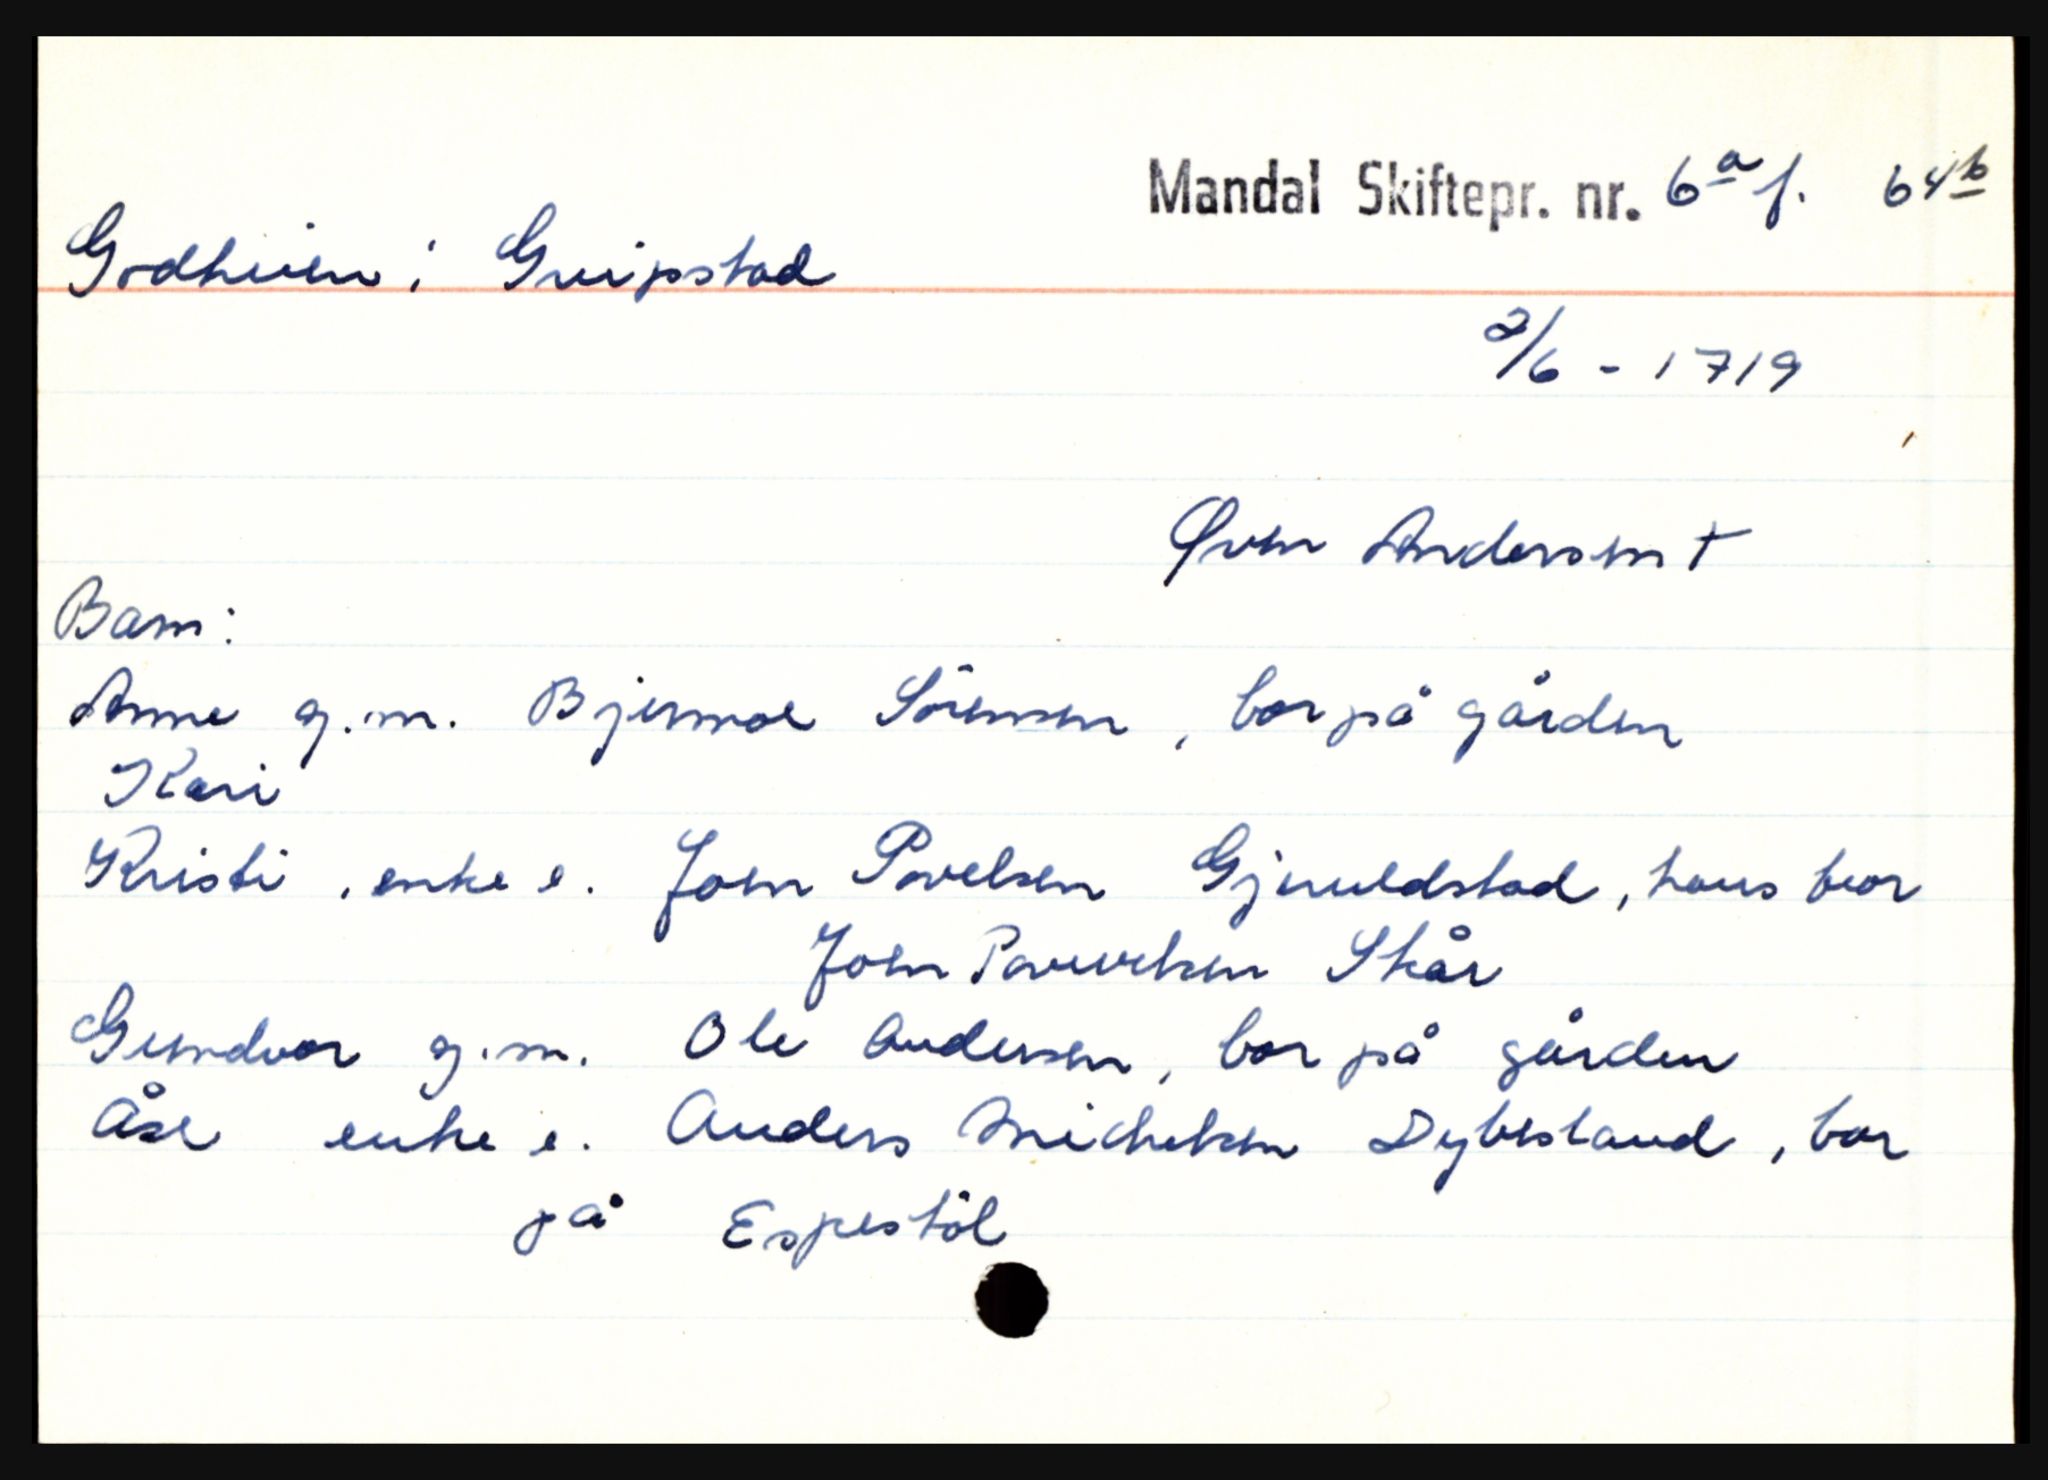 Mandal Skiftepr. nr. 6a f. 64b
Godheien i Greipstad
2/6 - 1719
Øven Andersen +
Barn:
Anne g.m. Bjernvæ Sörensen, bor på gården
Kari
Kristi, enke e. Joen Povelsen Gjeruldstad, hans bror
Joen Skår
Gundvor g.m. Ole Andersen, bor på gården
Åse enke e. Anders Michelsen Dybesland, bor
på Espestöl